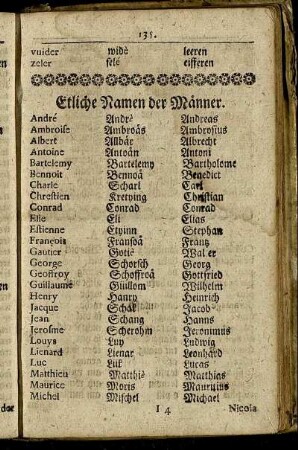 135.
vuider widè leeren
zeler selé eifferen
Etliche Namen der Männer.
André Andrè Andreas
Ambroise Ambroäs Ambrosius
Albert Allbär Albrecht
Antoine Antoän Antoni
Bartelemy Bartelemy Bartholome
Bennoit Bennoä Benedict
Charle Scharl Carl
Chrestien Kretying Christian
Conrad Conrad Conrad
Elie Eli Elias
Estienne Etyinn Stephan
François Fransoä Frantz
Gautier Gotié Walter
George Schorsch Georg
Geoffroy Schoffroä Gottfried
Guillaume Giullom Wilhelm
Henry Hanry Heinrich
Jacque Schäk Jacob
Jean Schang Hanns
Jerosme Scherohm Jeronimus
Louys Luy Ludwig
Lienard Lienar Leonhard
Luc Luk Lucas
Matthieu Matthié Matthias
Maurice Moris Mauritius
Michel Mischel Michael
I 4 Nicola